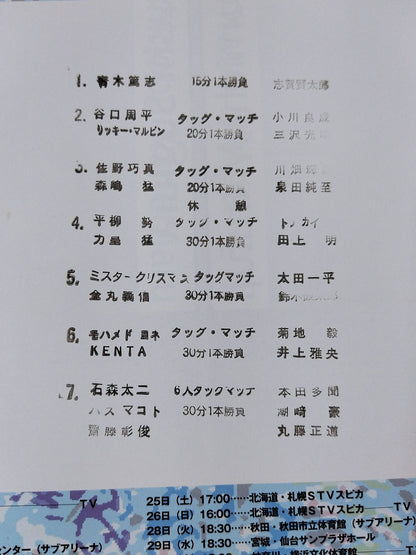 1. 青木篤志 15分1本勝負 志賀賢太郎
2. 谷口周平 タッグ・マッチ 小川良成
リッキー・マルビン 20分1本勝負 三沢光晴
3. 佐野巧真 タッグ・マッチ 川畑
森嶋 猛 20分1本勝負 泉田純至
休 憩
4. 平柳 勢 タッグ・マッチ トノカイ
力皇 猛 30分1本勝負 田上 明
5. ミスタークリスマス タッグマッチ 太田一平
金丸義信 30分1本勝負 鈴木
6. モハメド ヨネ タッグ・マッチ 菊地 毅
KENTA 30分1本勝負 井上雅央
7. 石森太二 6人タッグマッチ 本田多聞
バス マコト 30分1本勝負 潮﨑 豪
齋藤彰俊 丸藤正道
TV 25日（土）17:00……北海道・札幌STVスピカ
26日（日）16:00……北海道・札幌STVスピカ TV
28日（火）18:30……秋田・秋田市立体育館（サブアリーナ）
センター（サブアリーナ） 29日（水）18:30……宮城・仙台サンプラザホール